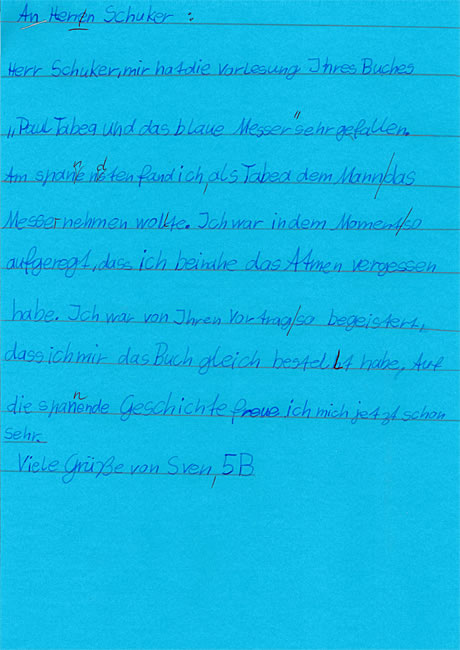 An Herrn Schuker :
Herr Schuker, mir hat die Vorlesung Ihres Buches
„Paul Tabea und das blaue Messer" sehr gefallen.
Am spannendsten fand ich, als Tabea dem Mann/das
Messer nehmen wollte. Ich war in dem Moment/so
aufgeregt, dass ich beinahe das Atmen vergessen
habe. Ich war von Ihren Vortrag/so begeistert,
dass ich mir das Buch gleich bestellt habe, Auf
die spannende Geschichte freue ich mich jetzt schon
sehr.
Viele Grüße von Sven, 5B